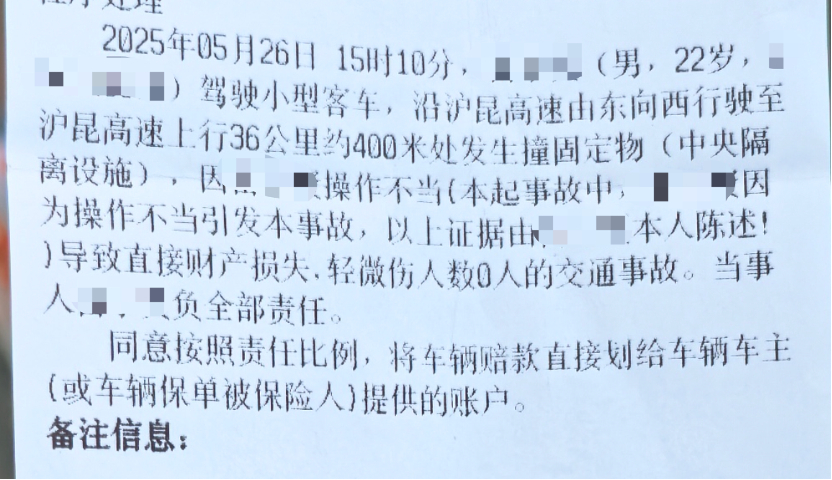 处理
2025年05月26日 15时10分，（男，22岁，
）驾驶小型客车，沿沪昆高速由东向西行驶至
沪昆高速上行36公里约400米处发生撞固定物（中央隔
离设施），因操作不当(本起事故中，因
为操作不当引发本事故，以上证据由本人陈述!
)导致直接财产损失、轻微伤人数0人的交通事故。当事
人负全部责任。
同意按照责任比例，将车辆赔款直接划给车辆车主
(或车辆保单被保险人)提供的账户。
备注信息：